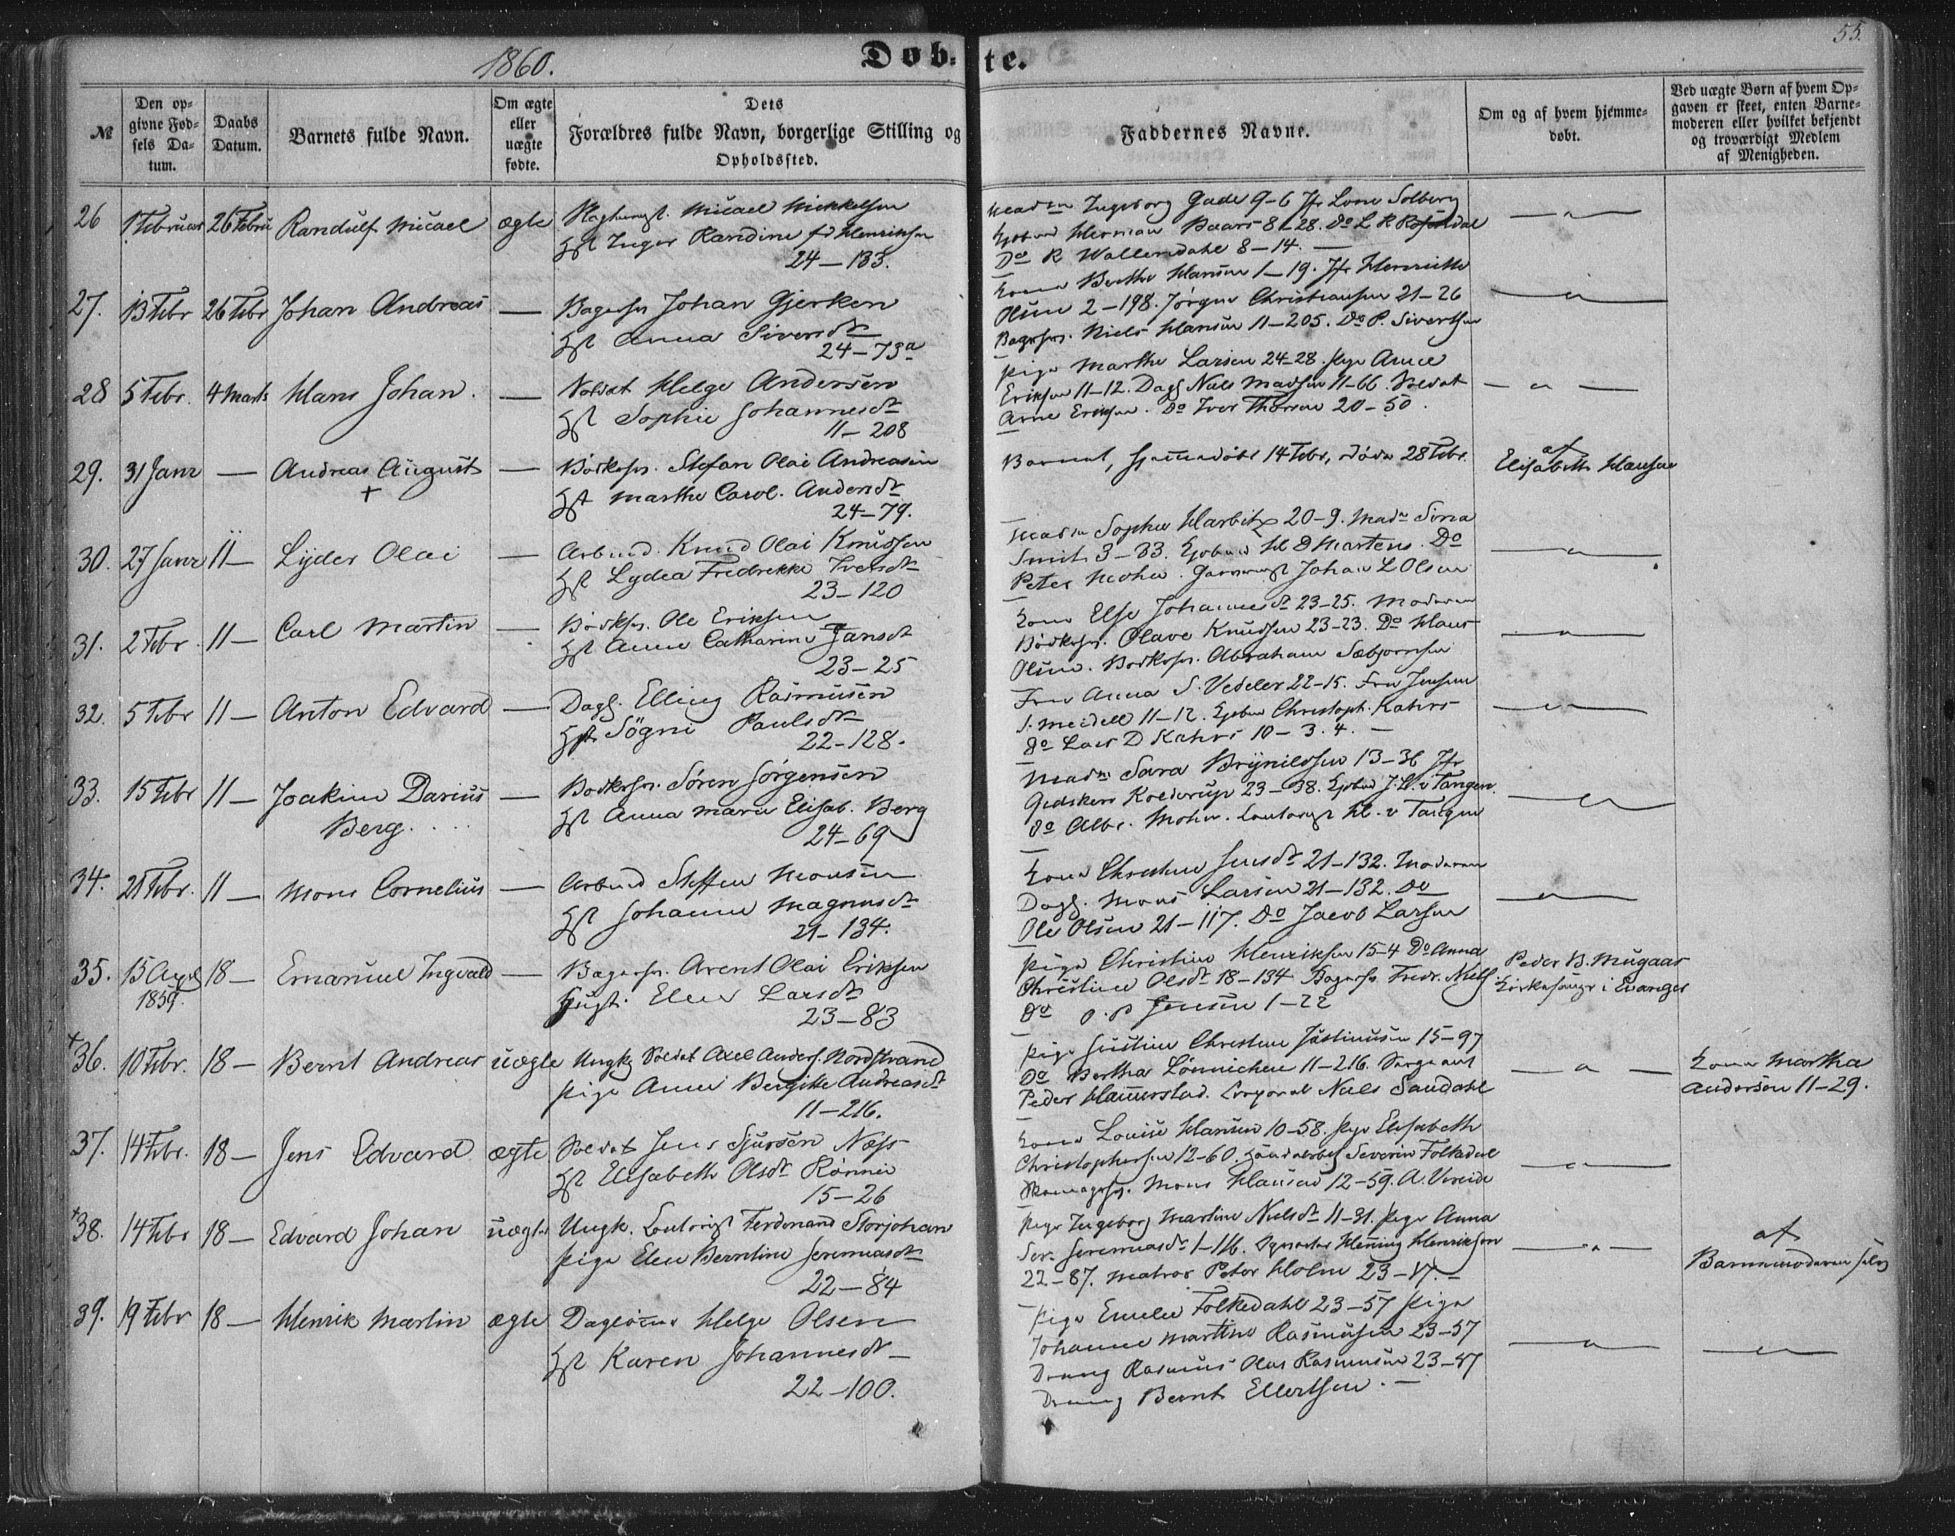 1860.
Døbte.
55.
№
Den opgivne Fødsels Datum.
Daabs Datum.
Barnets fulde Navn.
Om ægte eller uægte fødte.
Dets Forældres fulde Navn, borgerlige Stilling og Opholdssted.
Faddernes Navne.
Om og af hvem hjemmedøbt.
Ved uægte Børn af hvem Opgaven er skeet, enten Barnemoderen eller hvilket bekjendt og troværdigt Medlem af Menigheden.
26 1 Februar 26 Febru Randulf Micael ægte Micael Mikkelsen
Hst Inger Randine f d Henriksen
24–133.
Madm Ingeborg Gade 9–6 Jfr Love Solberg
Herman Baars 8–28. Do L R Rosendal
Do R Wallemdahl 8–14. —
27. 13 Febr 26 Febr Johan Andreas — Bagersv Johan Gjerken
Hst Anna Siversdtr
24–73a
Kone Berthe Hansen 1–19. Jfr Henriette
Olsen 2–198. Jørgen Christiansen 21–26
Bagersv. Niels Hansen 11–205. Do P. Sivertsen
28 5 Febr. 4 Marts Hans Johan. — Soldat Helge Andersen
Hst Sophie Johannesdtr
11–208
Pige Marthe Larsen 24–28. Pige Anne
Eriksen 11–12. Dagl Niels Madsen 11–66. Soldat
Arne Eriksen. Do Iver Thorsen 20–50.
29. 31 Janr — Andreas August — Bødkersv. Stefan Olai Andreasen
+
Hst Marthe Carol. Andersdtr
24–79.
Barnet, hjemmedøbt 14 Febr, døde 28 Febr.
af
Elisabeth Hansen
30. 27 Janr 11 — Lyder Olai — Arbmd. Knud Olai Knudsen
Hst Lydea Fredrekke Iversdtr
23–120
Madm Sophie Harbitz 20–9. Madm Sirra
Smith 3–33. Hl D Martens. Do
Peter Mohn. Johan L Olsen
31. 2 Febr. 11 — Carl Martin — Bødkersv. Ole Eriksen
Hst Anne Catharine Jansdt
23–25
Kone Else Johannesdtr 23–25. Moderen
Bødkersv. Olave Knudsen 23–23. Do Hans
Olsen. Bødkersv. Abraham Sæbjørnsen
32. 5 Febr 11 — Anton Edvard — Dagl. Elling Rasmusen
Hst Søgni Paulsdtr
22–128.
Fru Anna S. Vedeler 22–15. Fru
Meidell 11–12. Christoph. Kahrs
Do Lars D Kahrs 10–3.4. —
33. 15 Febr 11 — Joakim Darius — Bødkersv. Søren Jørgensen
Berg.
Hst Anna Marie Elisab. Berg
24–69
Madm Sara Brynildsen 13–36 Jfr
Gidsken Kolderup 23–38. J. H. v Tangen
Do Albr. Mohn. Hl. v Tangen
34. 21 Febr. 11 — Mons Cornelius — Arbmd Steffen Monsen
Hst Johanne Magnusdtr
21–134.
Kone Christine Jensdtr 21–132. Moderen
Dagl. Mons Larsen 21–132. Do
Ole Olsen 21–117. Do Jacob Larsen
35. 15 April 18 — Emanuel Ingvald — Bagersv. Arent Olai Eriksen
1859.
Hugst. Elen Larsdtr
23–83
Pige Christine Henriksen 15–4 Do Anna
Christine Olsdtr 18–134 Bagersv Fredr.
Do O. P Jensen 1–22
Peder B. Mugaas
Kirkesanger i Evanger
+
36. 10 Febr. 18 — Bernt Andreas uægte Ungk Soldat Axel Anders. Nordstrand
Pige Anne Bergitte Andreasdt
11–216.
Pige Justine Christine Justinusen 15–97
Do Bertha Lønnichen 11–216. Sergeant
Peder Hammerstad. Corporal Niels Sandahl
Kone Martha
Andersen 11–29.
37. 14 Febr. 18 — Jens Edvard ægte Soldat Jens Sjursen Næss
Hst Elisabeth Olsdtr Rønnei
15–26
Kone Louise Hansen 10–58. Pige Elisabeth
Christophersen 12–60. Severin Folkedal
Skomagersv. Mons Hansen 12–59. A. Vereide
+
38. 14 Febr 18 — Edvard Johan uægte Ungk. Ferdinand Storjohan
Pige Elen Berntine Jeremiasdtr
22–84
Pige Ingeborg Martine Nielsdtr 11–31. Pige Anna
Ser. Jeremiasdtr 1–116. Henning Henriksen
22–87. Matros Peter Holm 23–47. —
af
Barnemoderen selv
39. 19 Febr 18 — Henrik Martin ægte Dagleiner Helge Olsen
Hst Karen Johannesdtr
22–100.
Pige Emelie Folkedahl 23–57 Pige
Johanne Martine Rasmusen 23–57
Dreng Rasmus Olai Rasmusen 23–47
Dreng Bernt Ellertsen. —